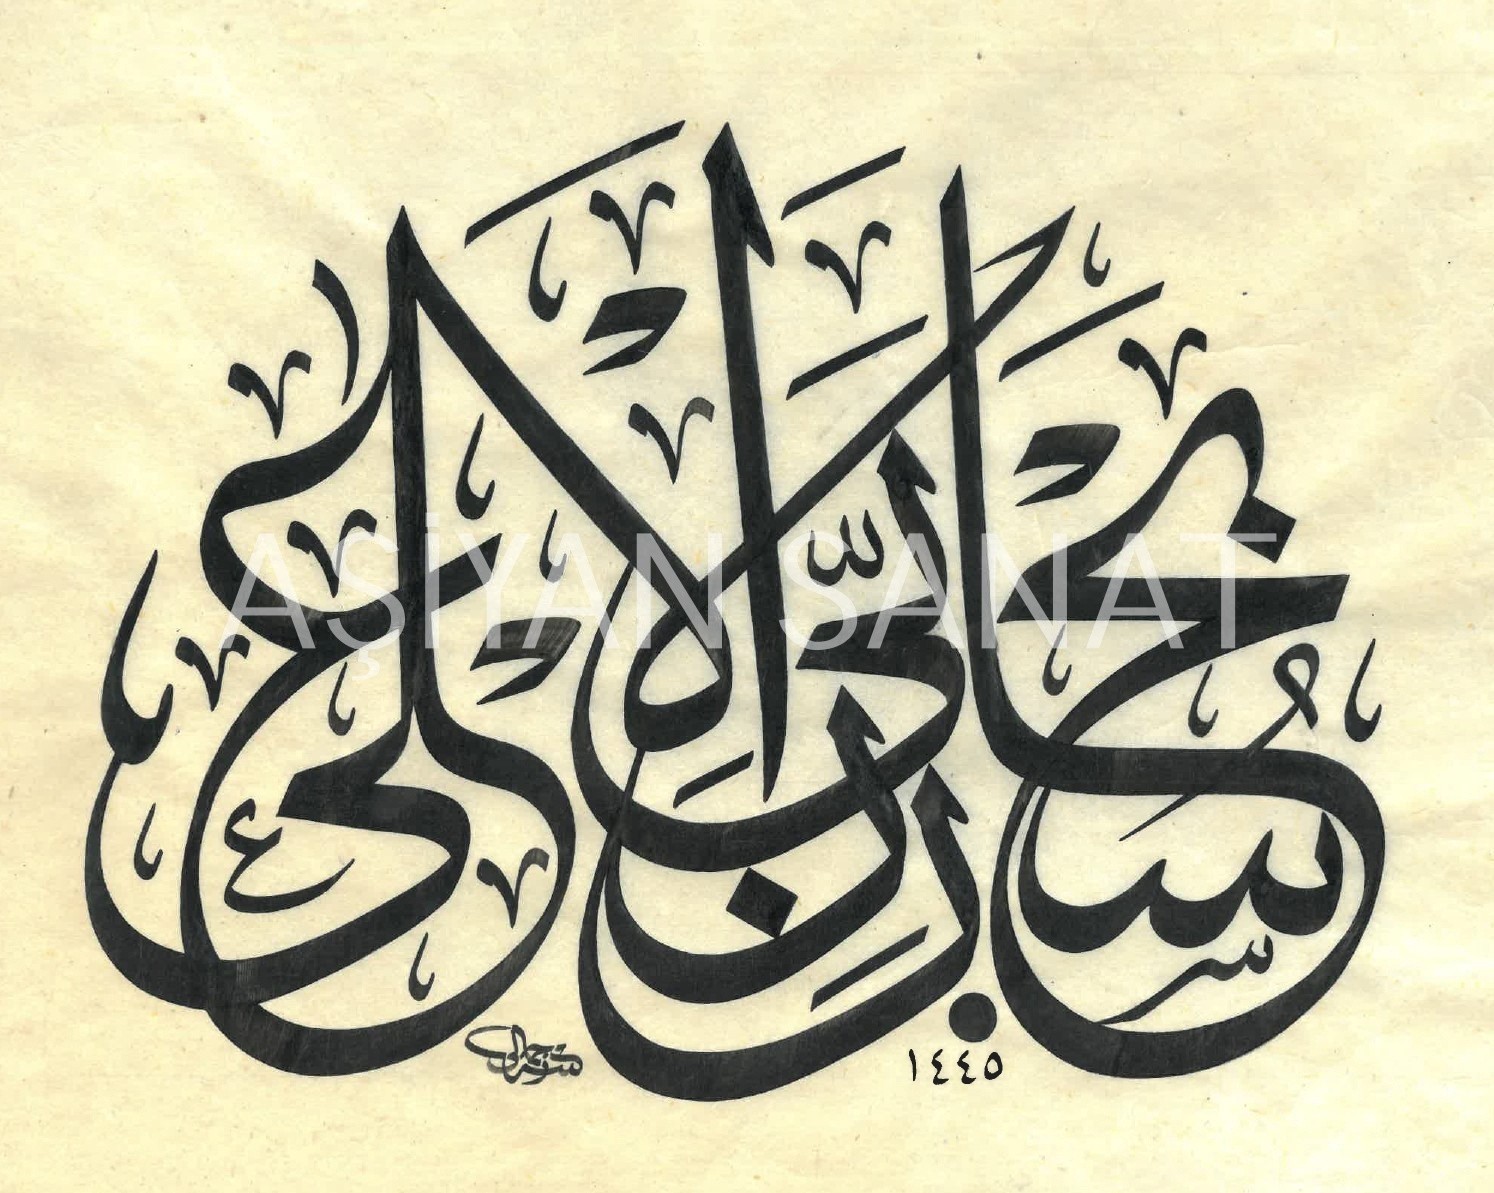 سُبْحَانَ رَبِّيَ الْأَعْلَى
AŞİYAN SANAT
١٤٤٥